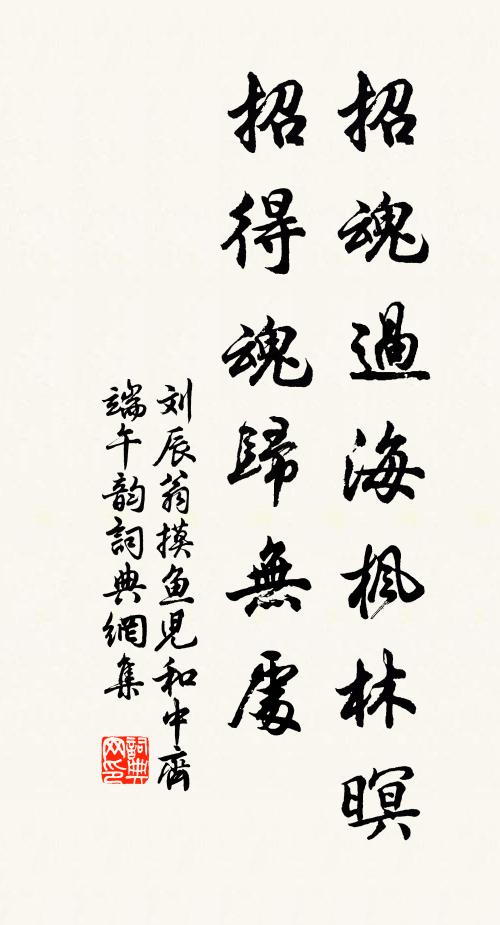 招魂過海楓林暝
招得魂歸無處
刘辰翁摸鱼児和中齋
端午韵詞典網集
詞典网印